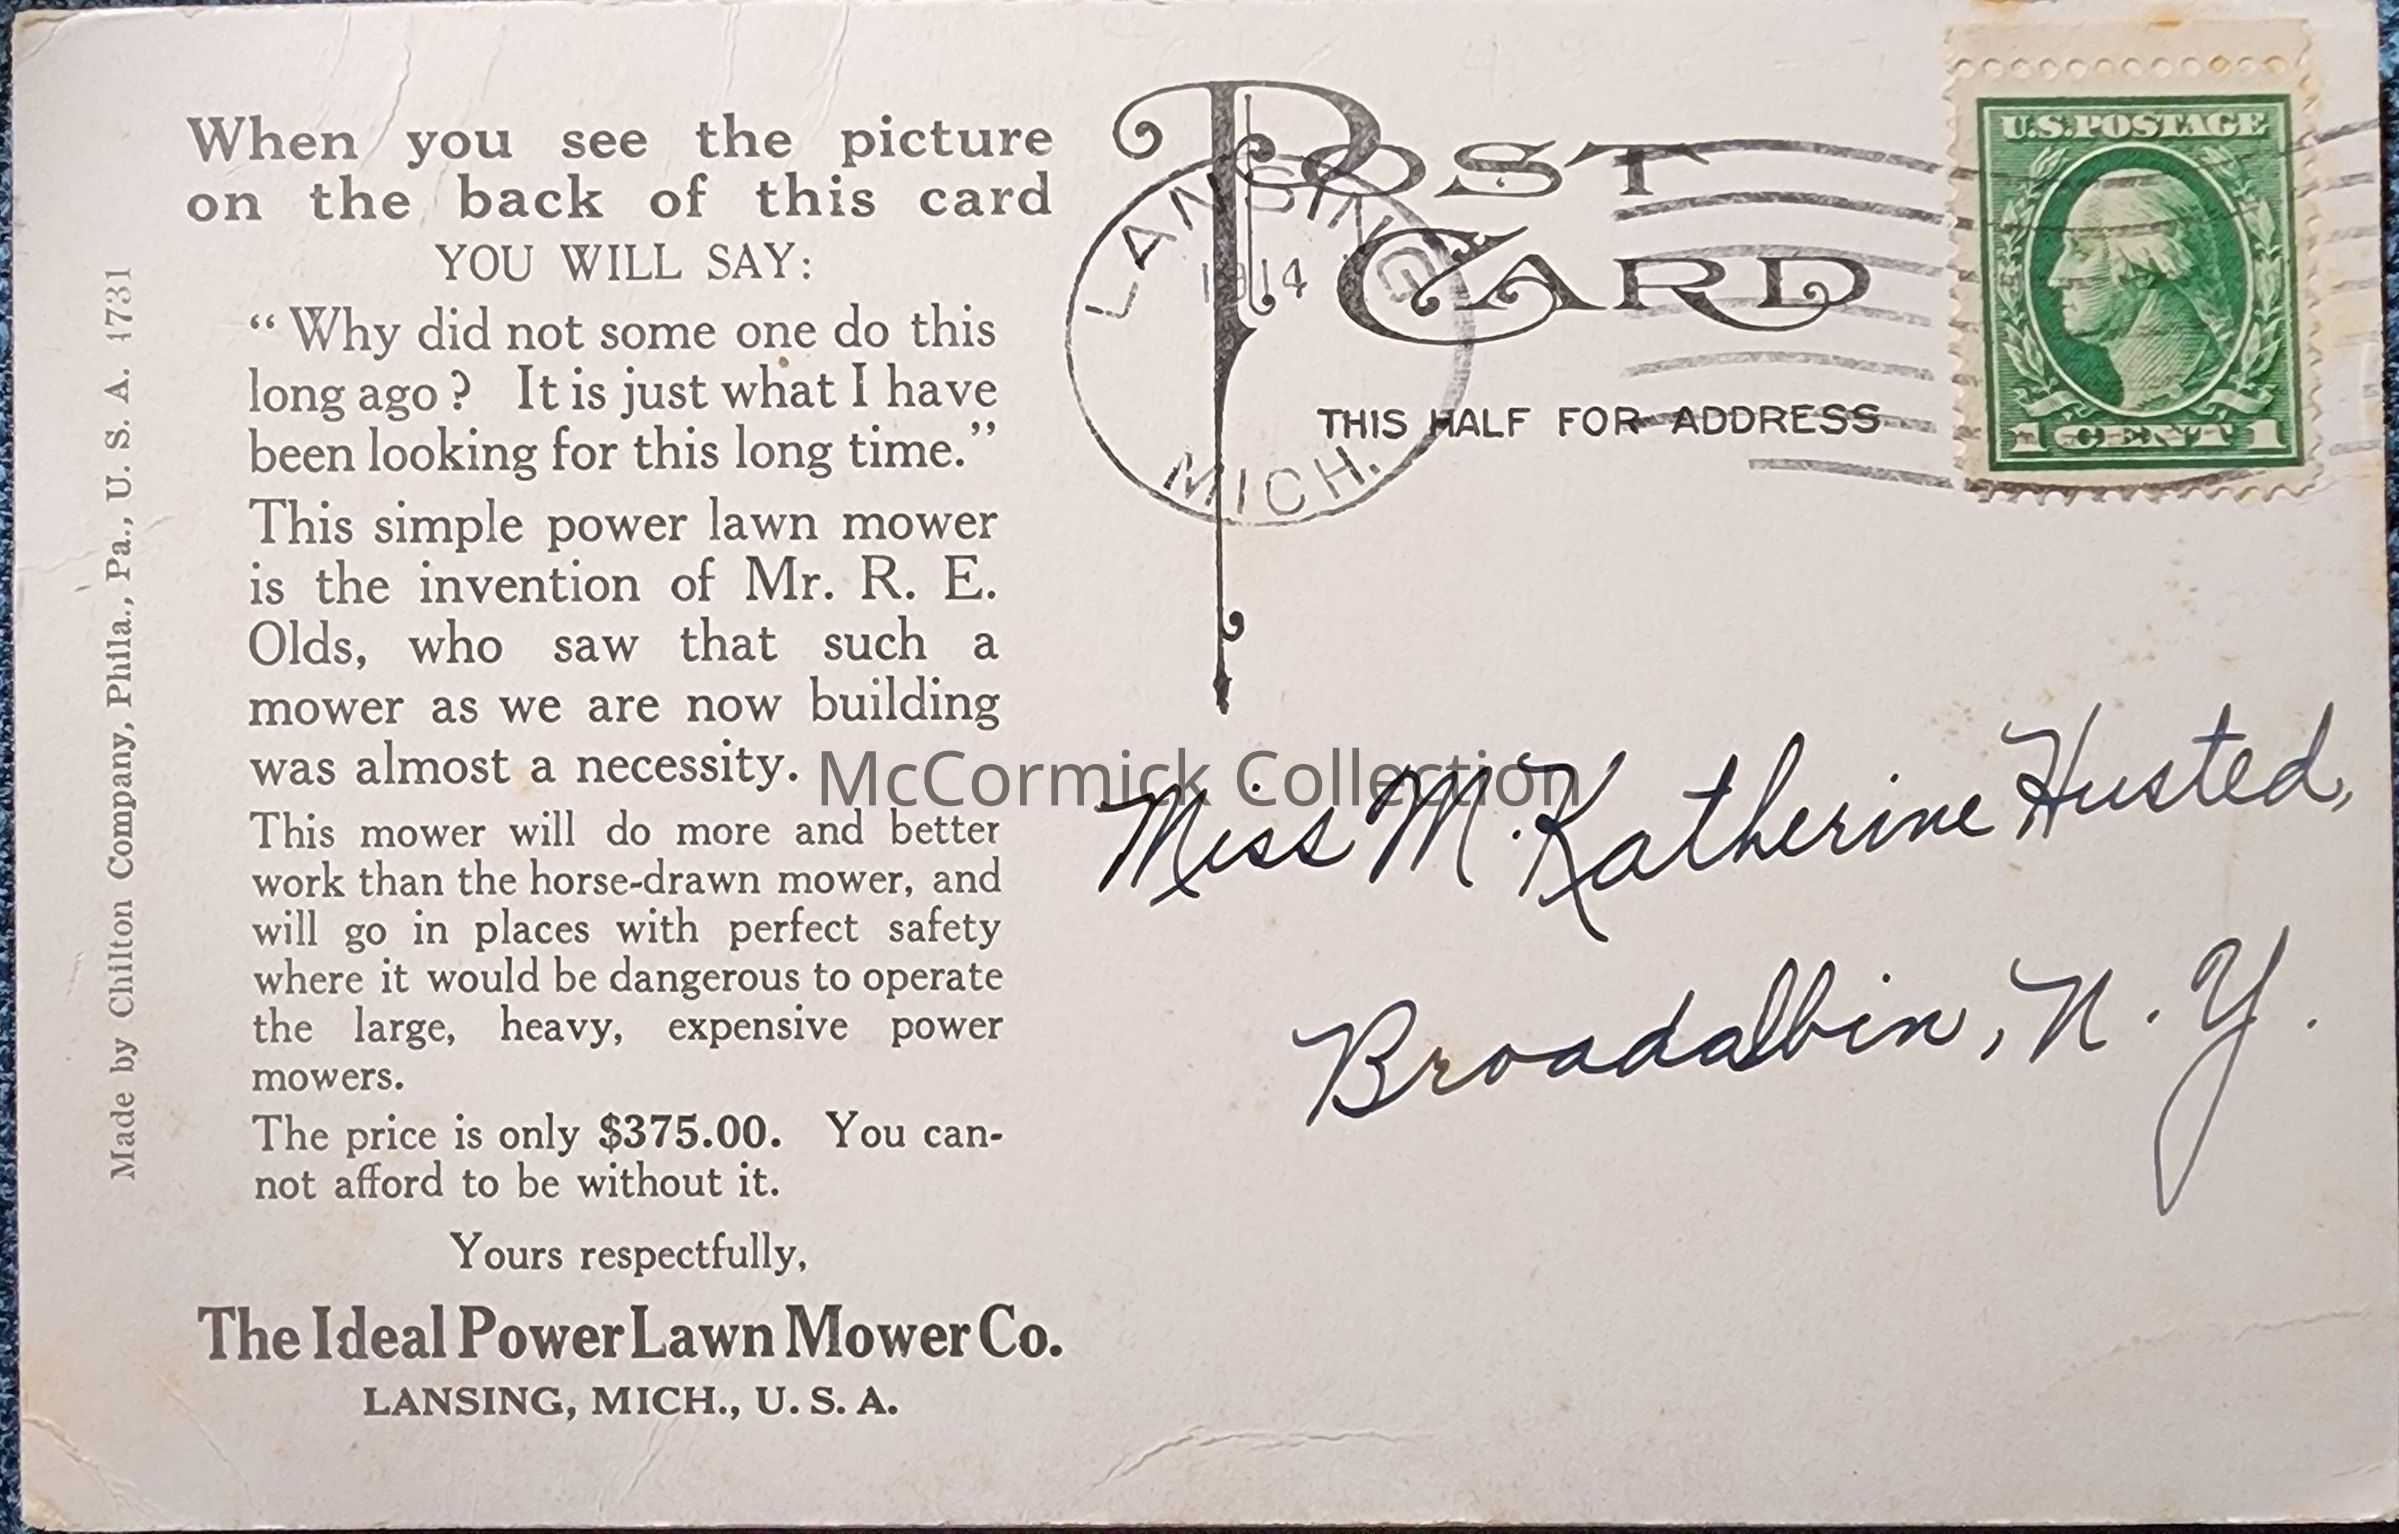 When you see the picture
on the back of this card
YOU WILL SAY:
“Why did not some one do this
long ago? It is just what I have
been looking for this long time.”
This simple power lawn mower
is the invention of Mr. R. E.
Olds, who saw that such a
mower as we are now building
was almost a necessity.
This mower will do more and better
work than the horse-drawn mower, and
will go in places with perfect safety
where it would be dangerous to operate
the large, heavy, expensive power
mowers.
The price is only $375.00. You can-
not afford to be without it.
Yours respectfully,
The Ideal Power Lawn Mower Co.
LANSING, MICH., U. S. A.
Made by Chilton Company, Phila., Pa., U. S. A. 4731
POST
CARD
THIS HALF FOR ADDRESS
LANSING
1914
MICH.
U.S. POSTAGE
1 CENT 1
Miss M. Katherine Husted,
Broadalbin, N. Y.
McCormick Collection